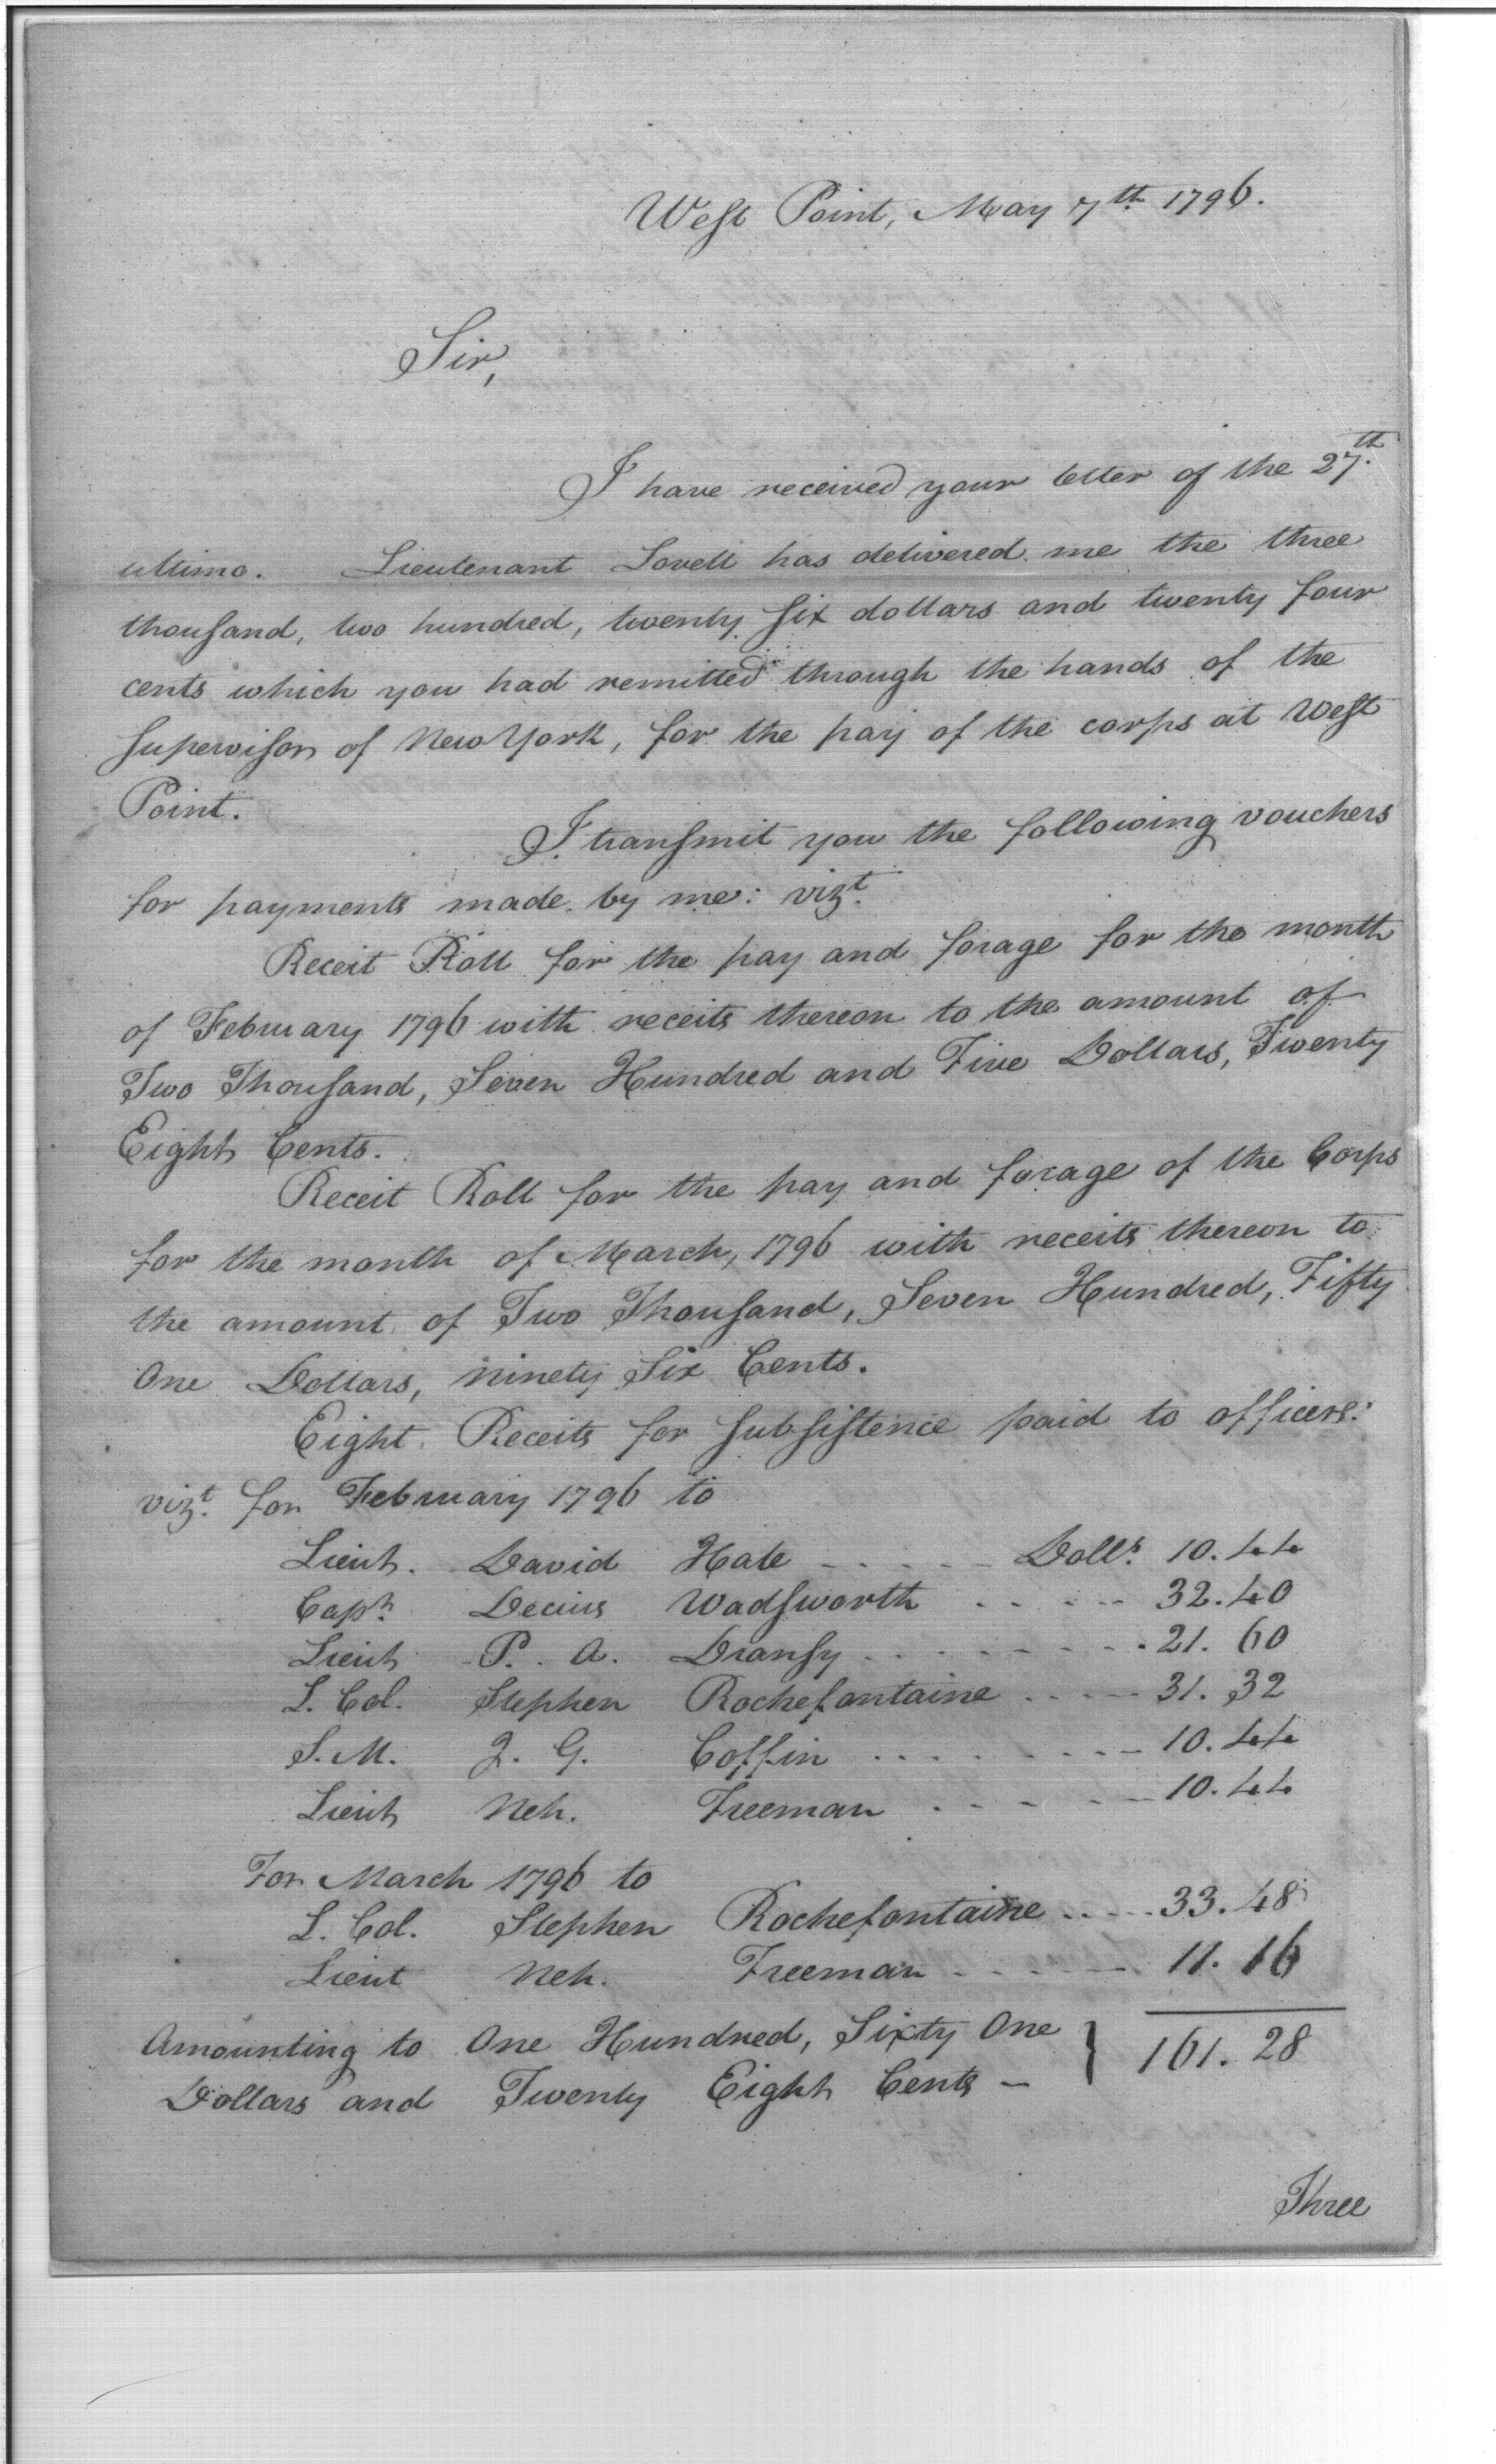 West Point, May 7th 1796.
Sir,
I have received your letter of the 27th.
ultimo. Lieutenant Lovell has delivered me the three
thousand, two hundred, twenty six dollars and twenty four
cents which you had remitted through the hands of the
supervisor of New York, for the pay of the corps at West
Point.
I transmit you the following vouchers
for payments made by me: vizt.
Receit Roll for the pay and forage for the month
of February 1796 with receits thereon to the amount of
Two Thousand, Seven Hundred and Five Dollars, Twenty
Eight Cents.
Receit Roll for the pay and forage of the Corps
for the month of March, 1796 with receits thereon to
the amount of Two Thousand, Seven Hundred, Fifty
One Dollars, Ninety Six Cents.
Eight Receits for subsistence paid to officers:
vizt. for February 1796 to
Lieut. David Hale - - - - - Dolls. 10.44
Capt. Decius Wadsworth - - - - - 32.40
Lieut P. A. Dransy - - - - - - - 21.60
L. Col. Stephen Rochefontaine - - - - 31.32
S. M. J. G. Coffin - - - - - - - 10.44
Lieut Neh. Freeman - - - - - 10.44
For March 1796 to
L. Col. Stephen Rochefontaine - - - - 33.48
Lieut Neh. Freeman - - - - - 11.16
Amounting to One Hundred, Sixty One } 161.28
Dollars and Twenty Eight Cents -
Three